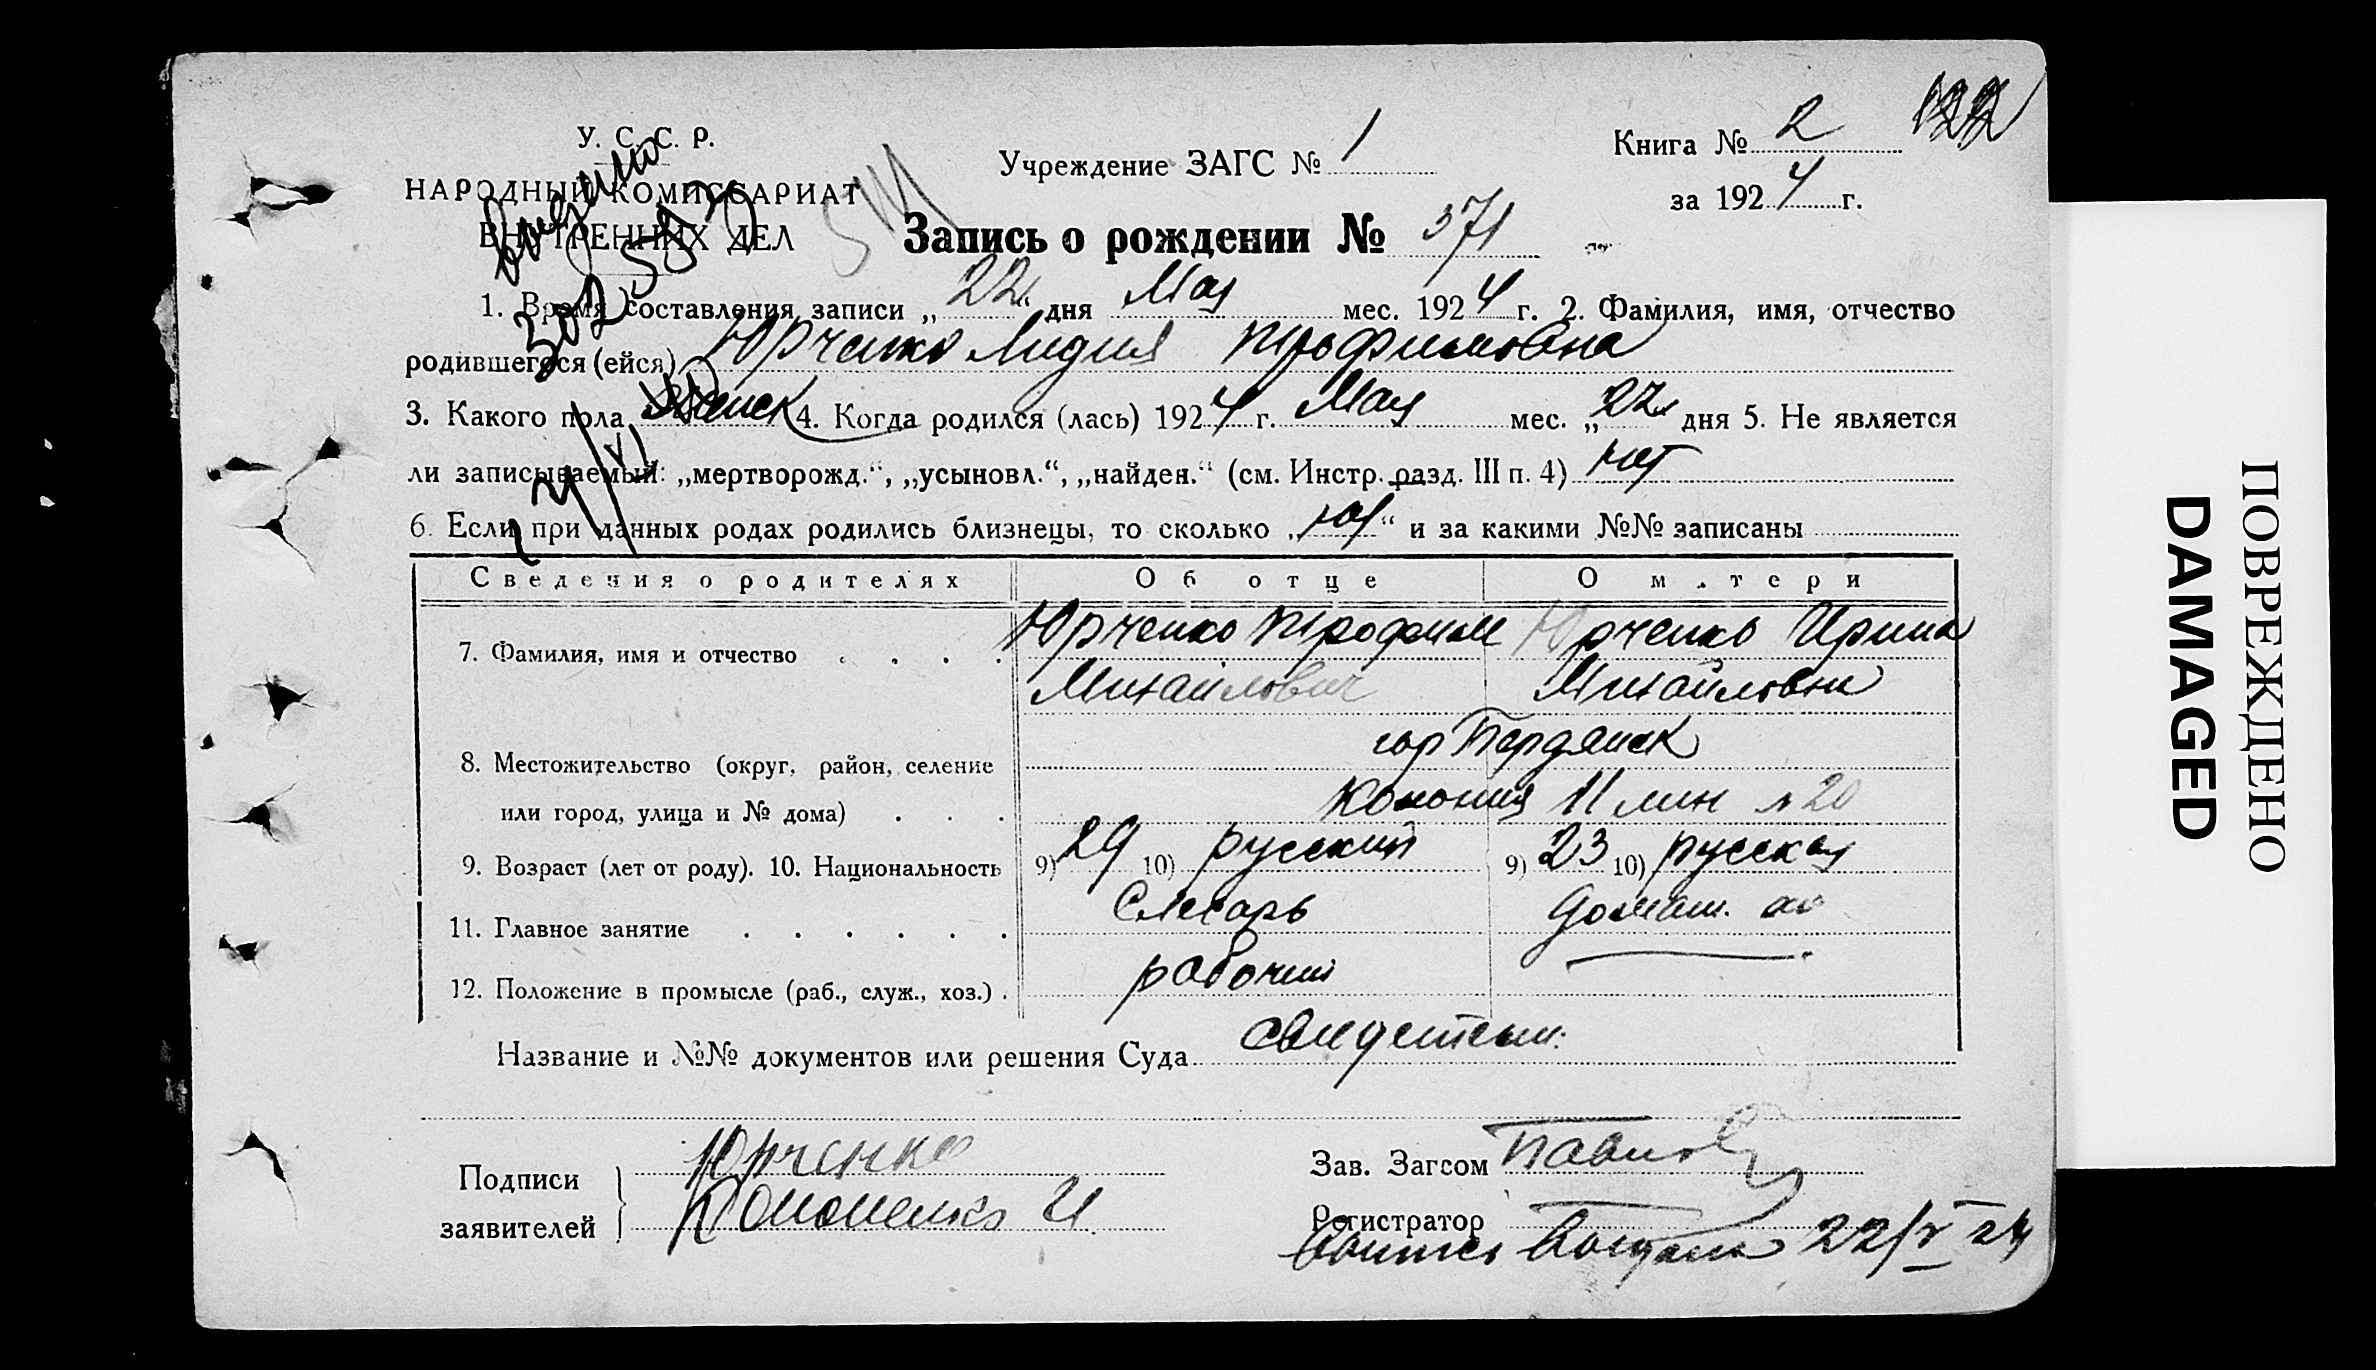 У. С. С. Р.
НАРОДНЫЙ КОМИССАРИАТ
ВНУТРЕННИХ ДЕЛ
Учреждение ЗАГС № 1
Книга № 2
за 1924 г.
Запись о рождении № 371
1. Время составления записи „22“ дня Мая мес. 1924 г. 2. Фамилия, имя, отчество
родившегося (ейся) Юрченко Лидия Трофимовна
3. Какого пола Женск 4. Когда родился (лась) 1924 г. Мая мес. „22“ дня 5. Не является
ли записываемый: „мертворожд.“, „усыновл.“, „найден.“ (см. Инстр. разд. III п. 4) нет
6. Если при данных родах родились близнецы, то сколько „нет“ и за какими №№ записаны
Сведения о родителях Об отце О м.тери
7. Фамилия, имя и отчество Юрченко Трофим Юрченко Ирина
Михайлович Михайловна
гор Бердянск
8. Местожительство (округ, район, селение
или город, улица и № дома) Колония 11 лин № 20
9. Возраст (лет от роду). 10. Национальность 9) 29 10) русский 9) 23 10) русская
11. Главное занятие Слесарь домаш. хо
12. Положение в промысле (раб., служ., хоз.) рабочий
Название и №№ документов или решения Суда
Подписи заявителей Юрченко
Кононенко И
Зав. Загсом Павлов
Регистратор
22/V 24
ПОВРЕЖДЕНО
DAMAGED